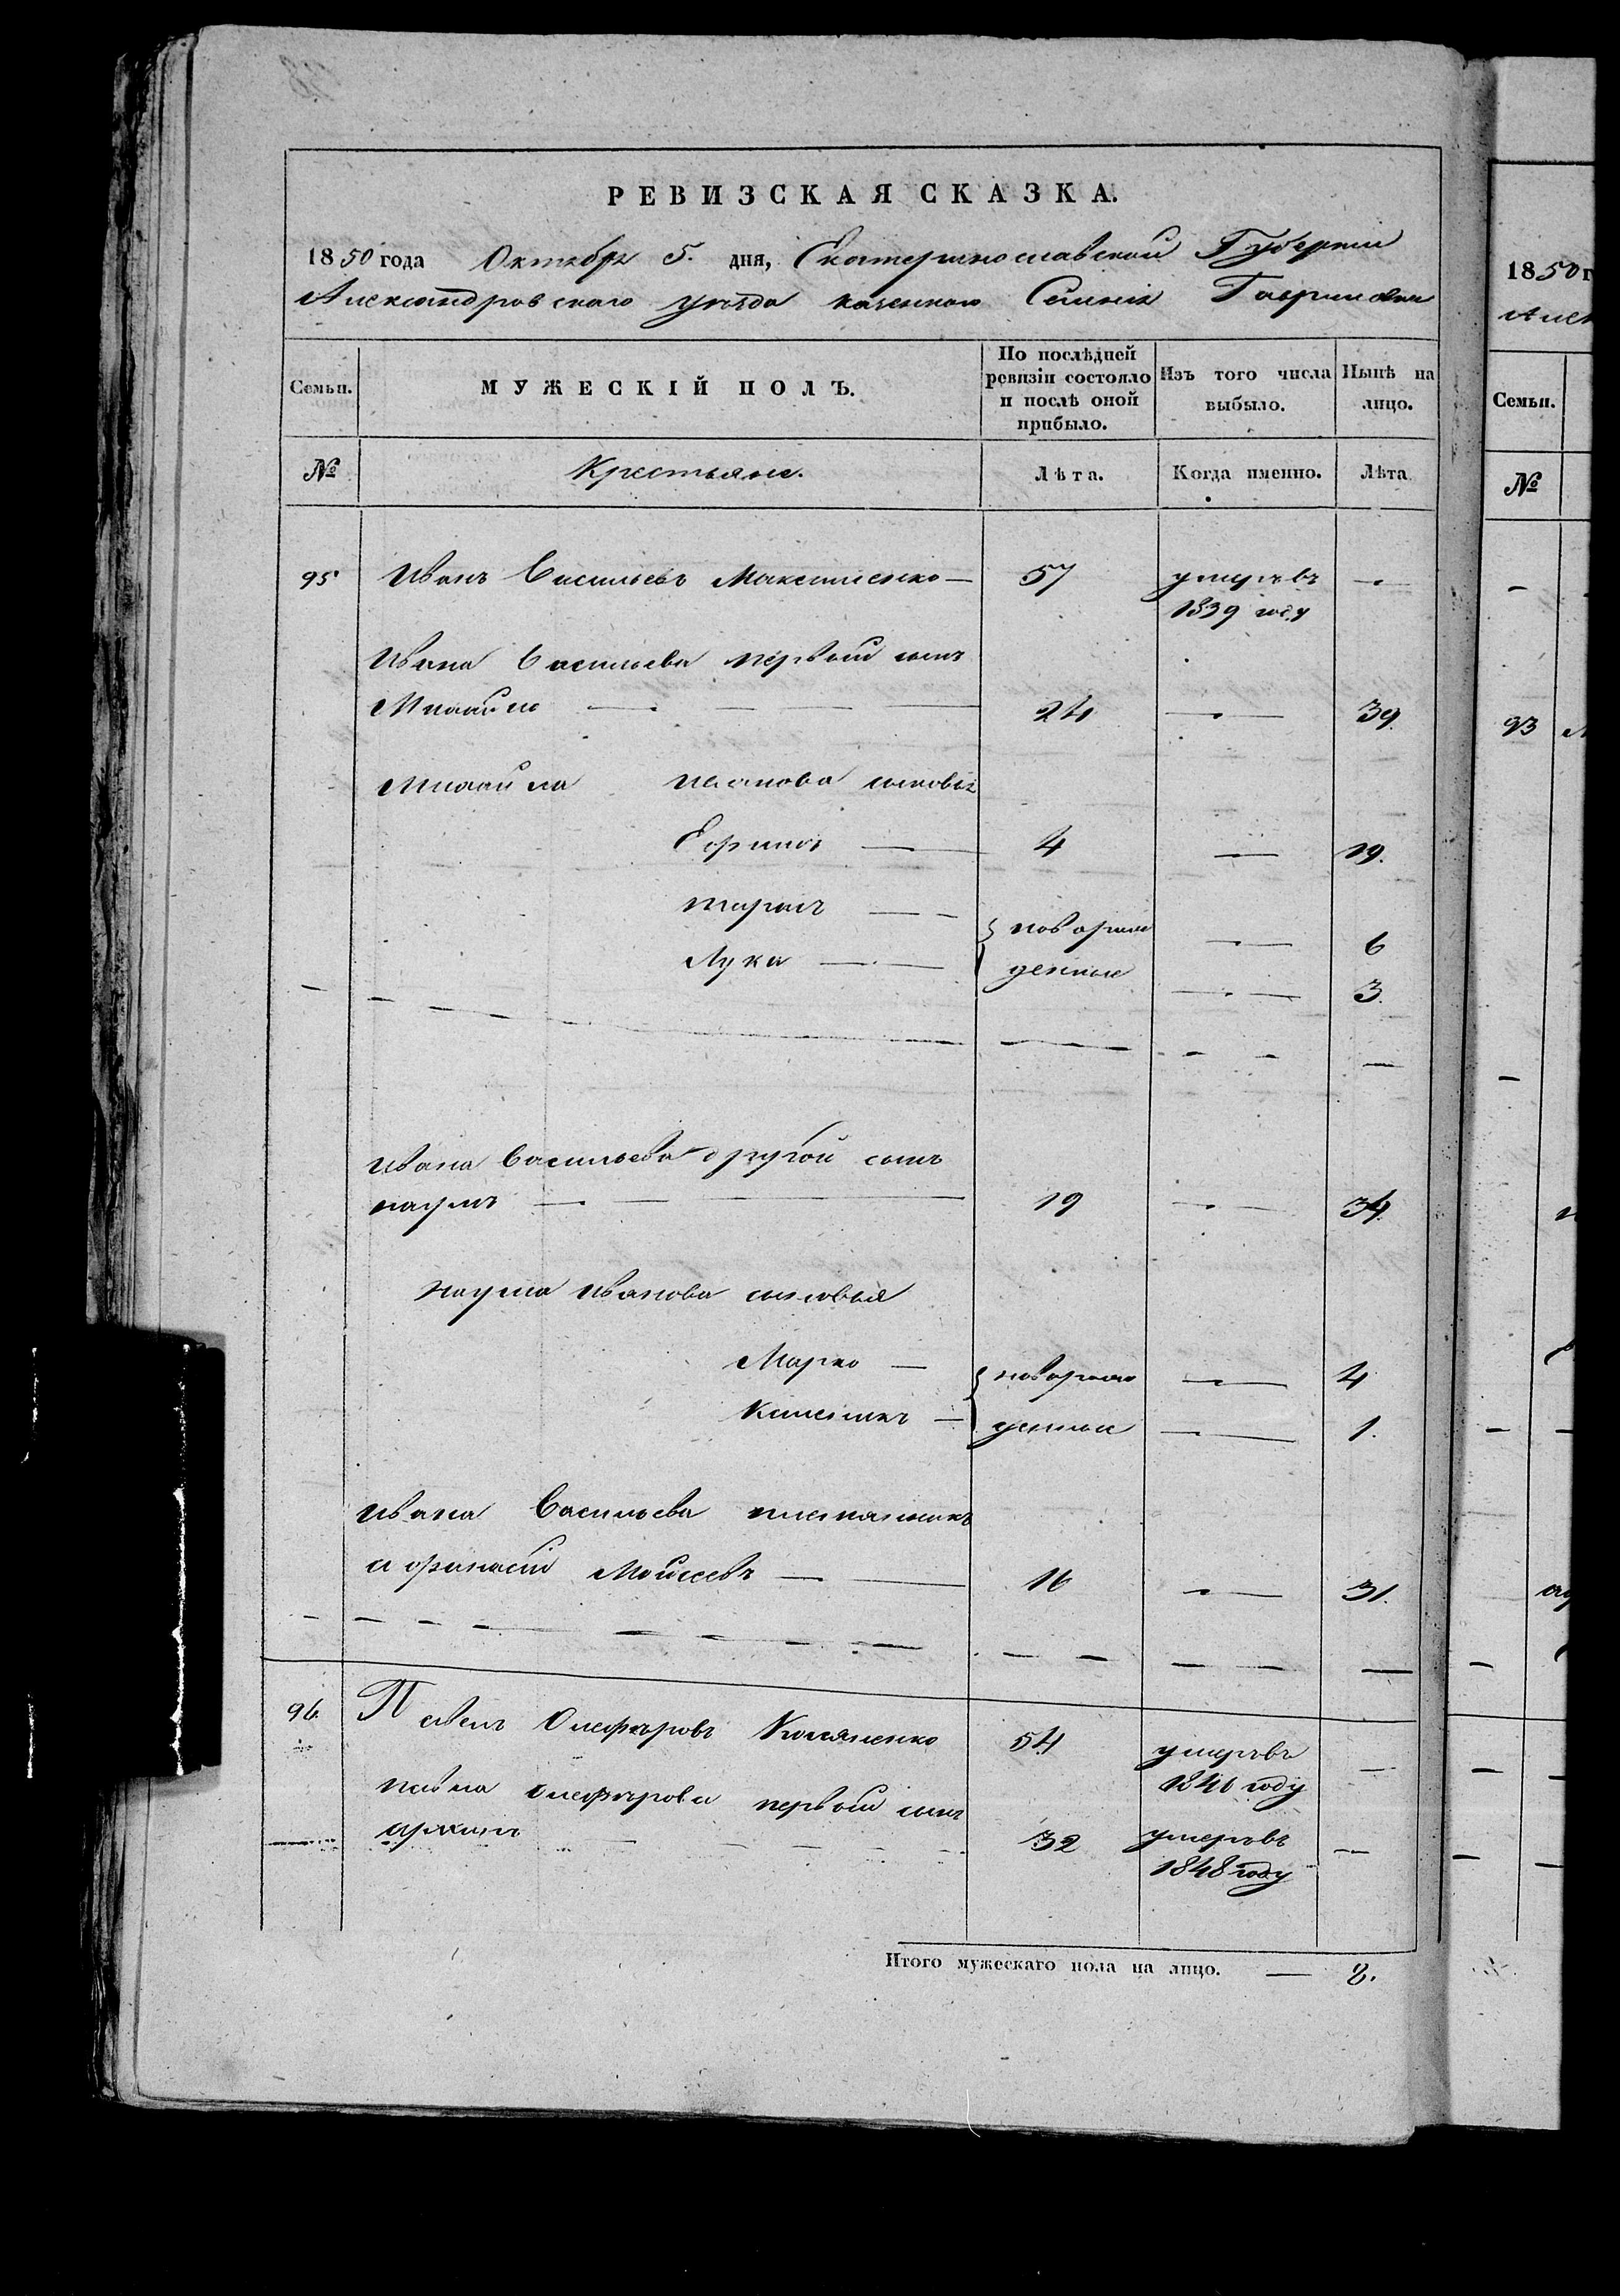 РЕВИЗСКАЯ СКАЗКА.
1850 года Октября 5. дня, Екатеринославской Губерніи
Александровскаго уѣзда казеннаго Селенія Гавриловки
Семьи. МУЖЕСКІЙ ПОЛЪ. По послѣдней ревизіи состояло и послѣ оной прибыло. Изъ того числа выбыло. Нынѣ на лицо.
№ Крестьяне. Лѣта. Когда именно. Лѣта
95 Иванъ Васильевъ Максименко — 57 умеръ въ —
1839 году
Ивана Васильева первый сынъ
Михайло — 24 — 39.
Михайла Иванова сыновья
Ефимъ — 4 — 19.
Тарасъ — новорож — 6
Лука — денные — 3.
Ивана Васильева другой сынъ
Наумъ — 19 — 34.
Наума Иванова сыновья
Марко — новорож — 4
Климентъ — денные — 1.
Ивана Васильева племянникъ
Афанасій Моисеевъ — 16 — 31.
96. Павелъ Олеферовъ 54 умеръ въ —
1846 году
Павла Олеферова первый сынъ
Архипъ 32 умеръ въ —
1848 году
Итого мужескаго пола на лицо. — 8.
1850 г
Алек
Семьи.
№
93